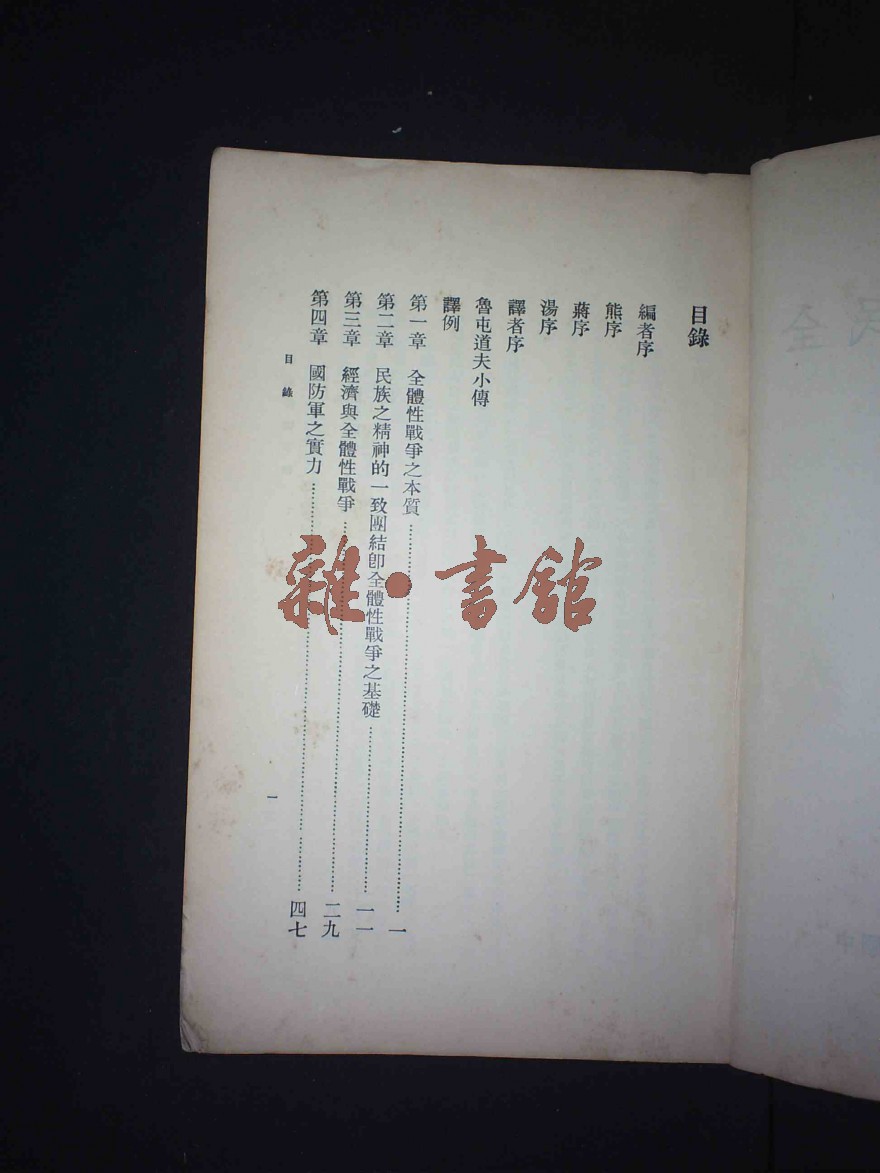 目錄
編者序
熊序
蔣序
湯序
譯者序
魯屯道夫小傳
譯例
第一章 全體性戰爭之本質……一
第二章 民族之精神的一致團結卽全體性戰爭之基礎……一一
第三章 經濟與全體性戰爭……二九
第四章 國防軍之實力……四七
目錄
一
雜·書館
全民